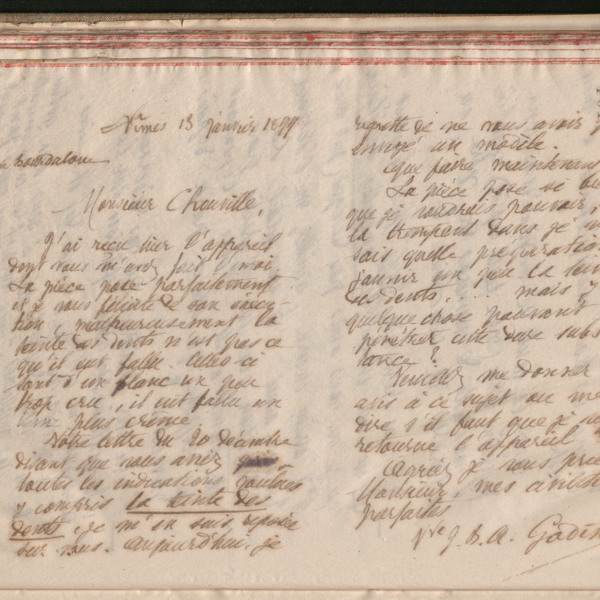 Nîmes 13 janvier 1899
Bourdaloue
Monsieur Chouville,
J'ai reçu hier l'appareil
dont vous m'avez fait l'envoi.
La pièce pose parfaitement
et je vous félicite de son exécu-
tion, malheureusement la
teinte des dents n'est pas ce
qu'il eut fallu. Celles-ci
sont d'un blanc un peu
trop cru, il eut fallu un
plus crème
Votre lettre du 20 décembre
disant que vous aviez
toutes les indications voulues
y compris la teinte des
dents, je m'en suis reposée
sur vous. Aujourd'hui, je
regrette de ne vous avoir
envoyé un modèle.
Que faire maintenant
La pièce pose si bien
que je voudrais pouvoir,
la trempant dans je ne
sais quelle préparation
jaunir un peu la tein
des dents, .... mais
quelque chose pourrait
pénétrer cette dure subs
tance ?
Veuillez me donner
avis à ce sujet ou me
dire s'il faut que je
retourne l'appareil
Agréez je vous prie
Monsieur, mes civilités
parfaites
Vve J. B. A. Godin